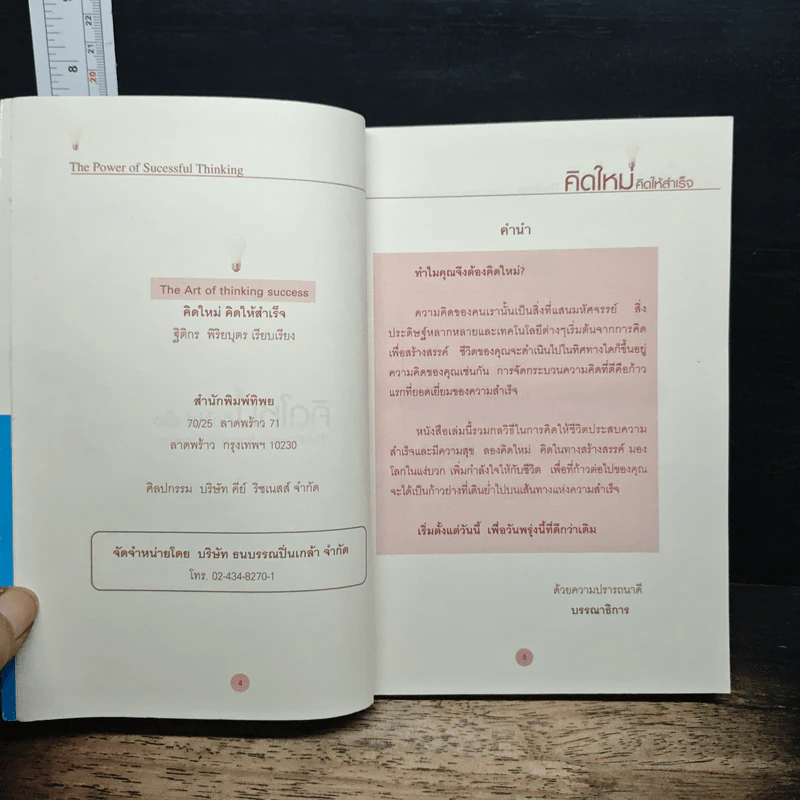 8
22
21
20
The Power of Sucessful Thinking
The Art of thinking success
คิดใหม่ คิดให้สำเร็จ
ฐิติกร พิริยบุตร เรียบเรียง
สำนักพิมพ์ทิพย
70/25 ลาดพร้าว 71
ลาดพร้าว กรุงเทพฯ 10230
ศิลปกรรม บริษัท คีย์ ริชเนสส์ จำกัด
จัดจำหน่ายโดย บริษัท ธนบรรณปิ่นเกล้า จำกัด
โทร. 02-434-8270-1
4
คิดใหม่ คิดให้สำเร็จ
คำนำ
ทำไมคุณจึงต้องคิดใหม่?
ความคิดของคนเรานั้นเป็นสิ่งที่แสนมหัศจรรย์ สิ่ง
ประดิษฐ์หลากหลายและเทคโนโลยีต่างๆเริ่มต้นจากการคิด
เพื่อสร้างสรรค์ ชีวิตของคุณจะดำเนินไปในทิศทางใดก็ขึ้นอยู่
ความคิดของคุณเช่นกัน การจัดกระบวนความคิดที่ดีคือก้าว
แรกที่ยอดเยี่ยมของความสำเร็จ
หนังสือเล่มนี้รวมกลวิธีในการคิดให้ชีวิตประสบความ
สำเร็จและมีความสุข ลองคิดใหม่ คิดในทางสร้างสรรค์ มอง
โลกในแง่บวก เพิ่มกำลังใจให้กับชีวิต เพื่อที่ก้าวต่อไปของคุณ
จะได้เป็นก้าวย่างที่เดินย่ำไปบนเส้นทางแห่งความสำเร็จ
เริ่มตั้งแต่วันนี้ เพื่อวันพรุ่งนี้ที่ดีกว่าเดิม
ด้วยความปรารถนาดี
บรรณาธิการ
5